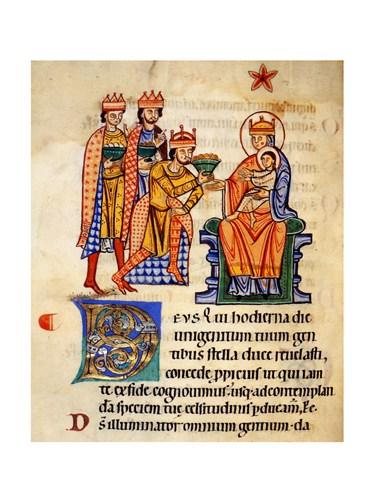 DEUS Qui hodierna die
unigenitum tuum gen
tibus stella duce reuelasti,
concede ppicius ut qui iam
te ex fide cognouimus, usq; ad contemplan
da speciem tue celsitudinis pducam̄,
D s illuminator omnium gentium da